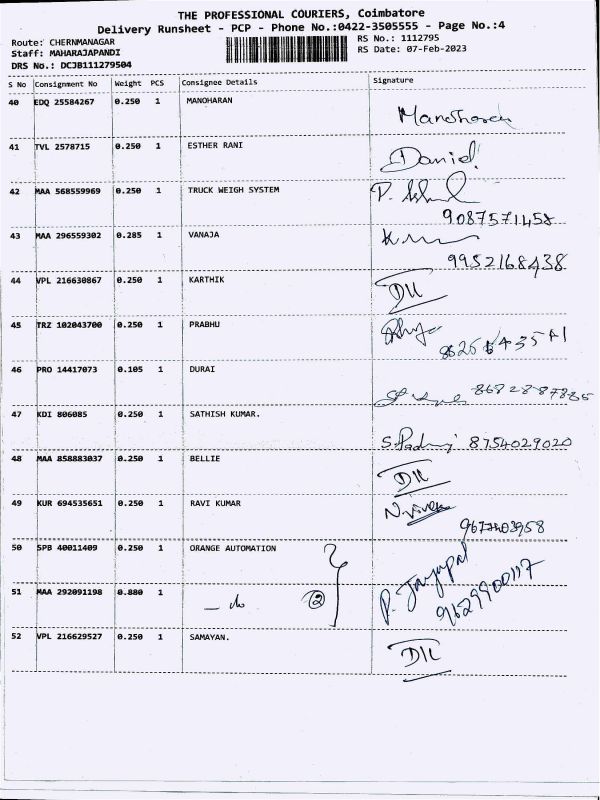 THE PROFESSIONAL COURIERS, Coimbatore
Delivery Runsheet - PCP - Phone No.:0422-3505555 - Page No.:4
Route: CHERNMANAGAR RS No.: 1112795
Staff: MAHARAJAPANDI RS Date: 07-Feb-2023
DRS No.: DCJB111279504
S No Consignment No Weight PCS Consignee Details Signature
40 EDQ 25584267 0.250 1 MANOHARAN
Manoharan
41 TVL 2578715 0.250 1 ESTHER RANI
Daniel
42 MAA 568559969 0.250 1 TRUCK WEIGH SYSTEM
9087571458
43 MAA 296559302 0.285 1 VANAJA
9952168438
44 VPL 216630867 0.250 1 KARTHIK
45 TRZ 102043700 0.250 1 PRABHU
46 PRO 14417073 0.105 1 DURAI
47 KDI 806085 0.250 1 SATHISH KUMAR.
8754029020
48 MAA 858883037 0.250 1 BELLIE
49 KUR 694535651 0.250 1 RAVI KUMAR
50 SPB 40011409 0.250 1 ORANGE AUTOMATION
51 MAA 292091198 0.880 1
— do 2
P. Jayapal
9629900117
52 VPL 216629527 0.250 1 SAMAYAN.